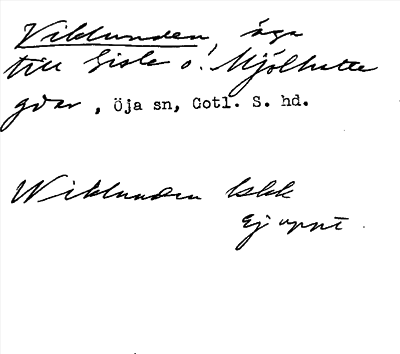 Viklunden, äga
till Gisle o. Mjölhatte
gdar, Öja sn, Gotl. S. hd.
Wiklunden lskk
Ej uppt.